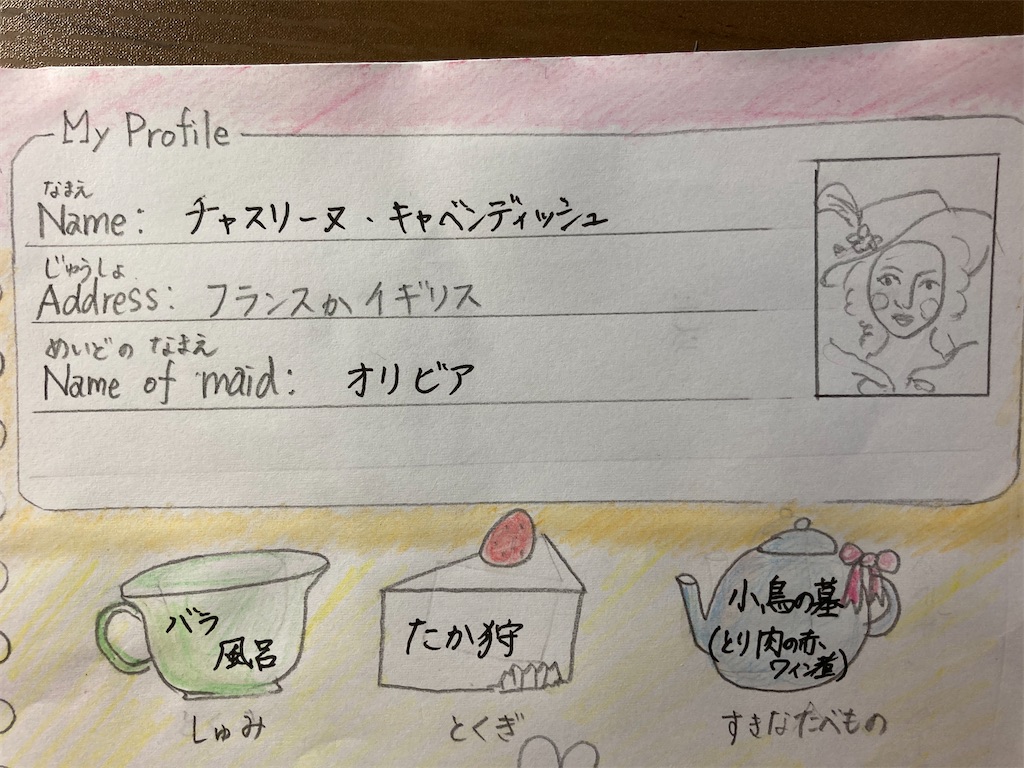 My Profile
なまえ
Name: チャスリーヌ・キャベンディッシュ
じゅうしょ
Address: フランスかイギリス
めいどの なまえ
Name of maid: オリビア
バラ
風呂
たか狩
小鳥の墓
(とり肉の赤
ワイン煮)
しゅみ
とくぎ
すきなたべもの